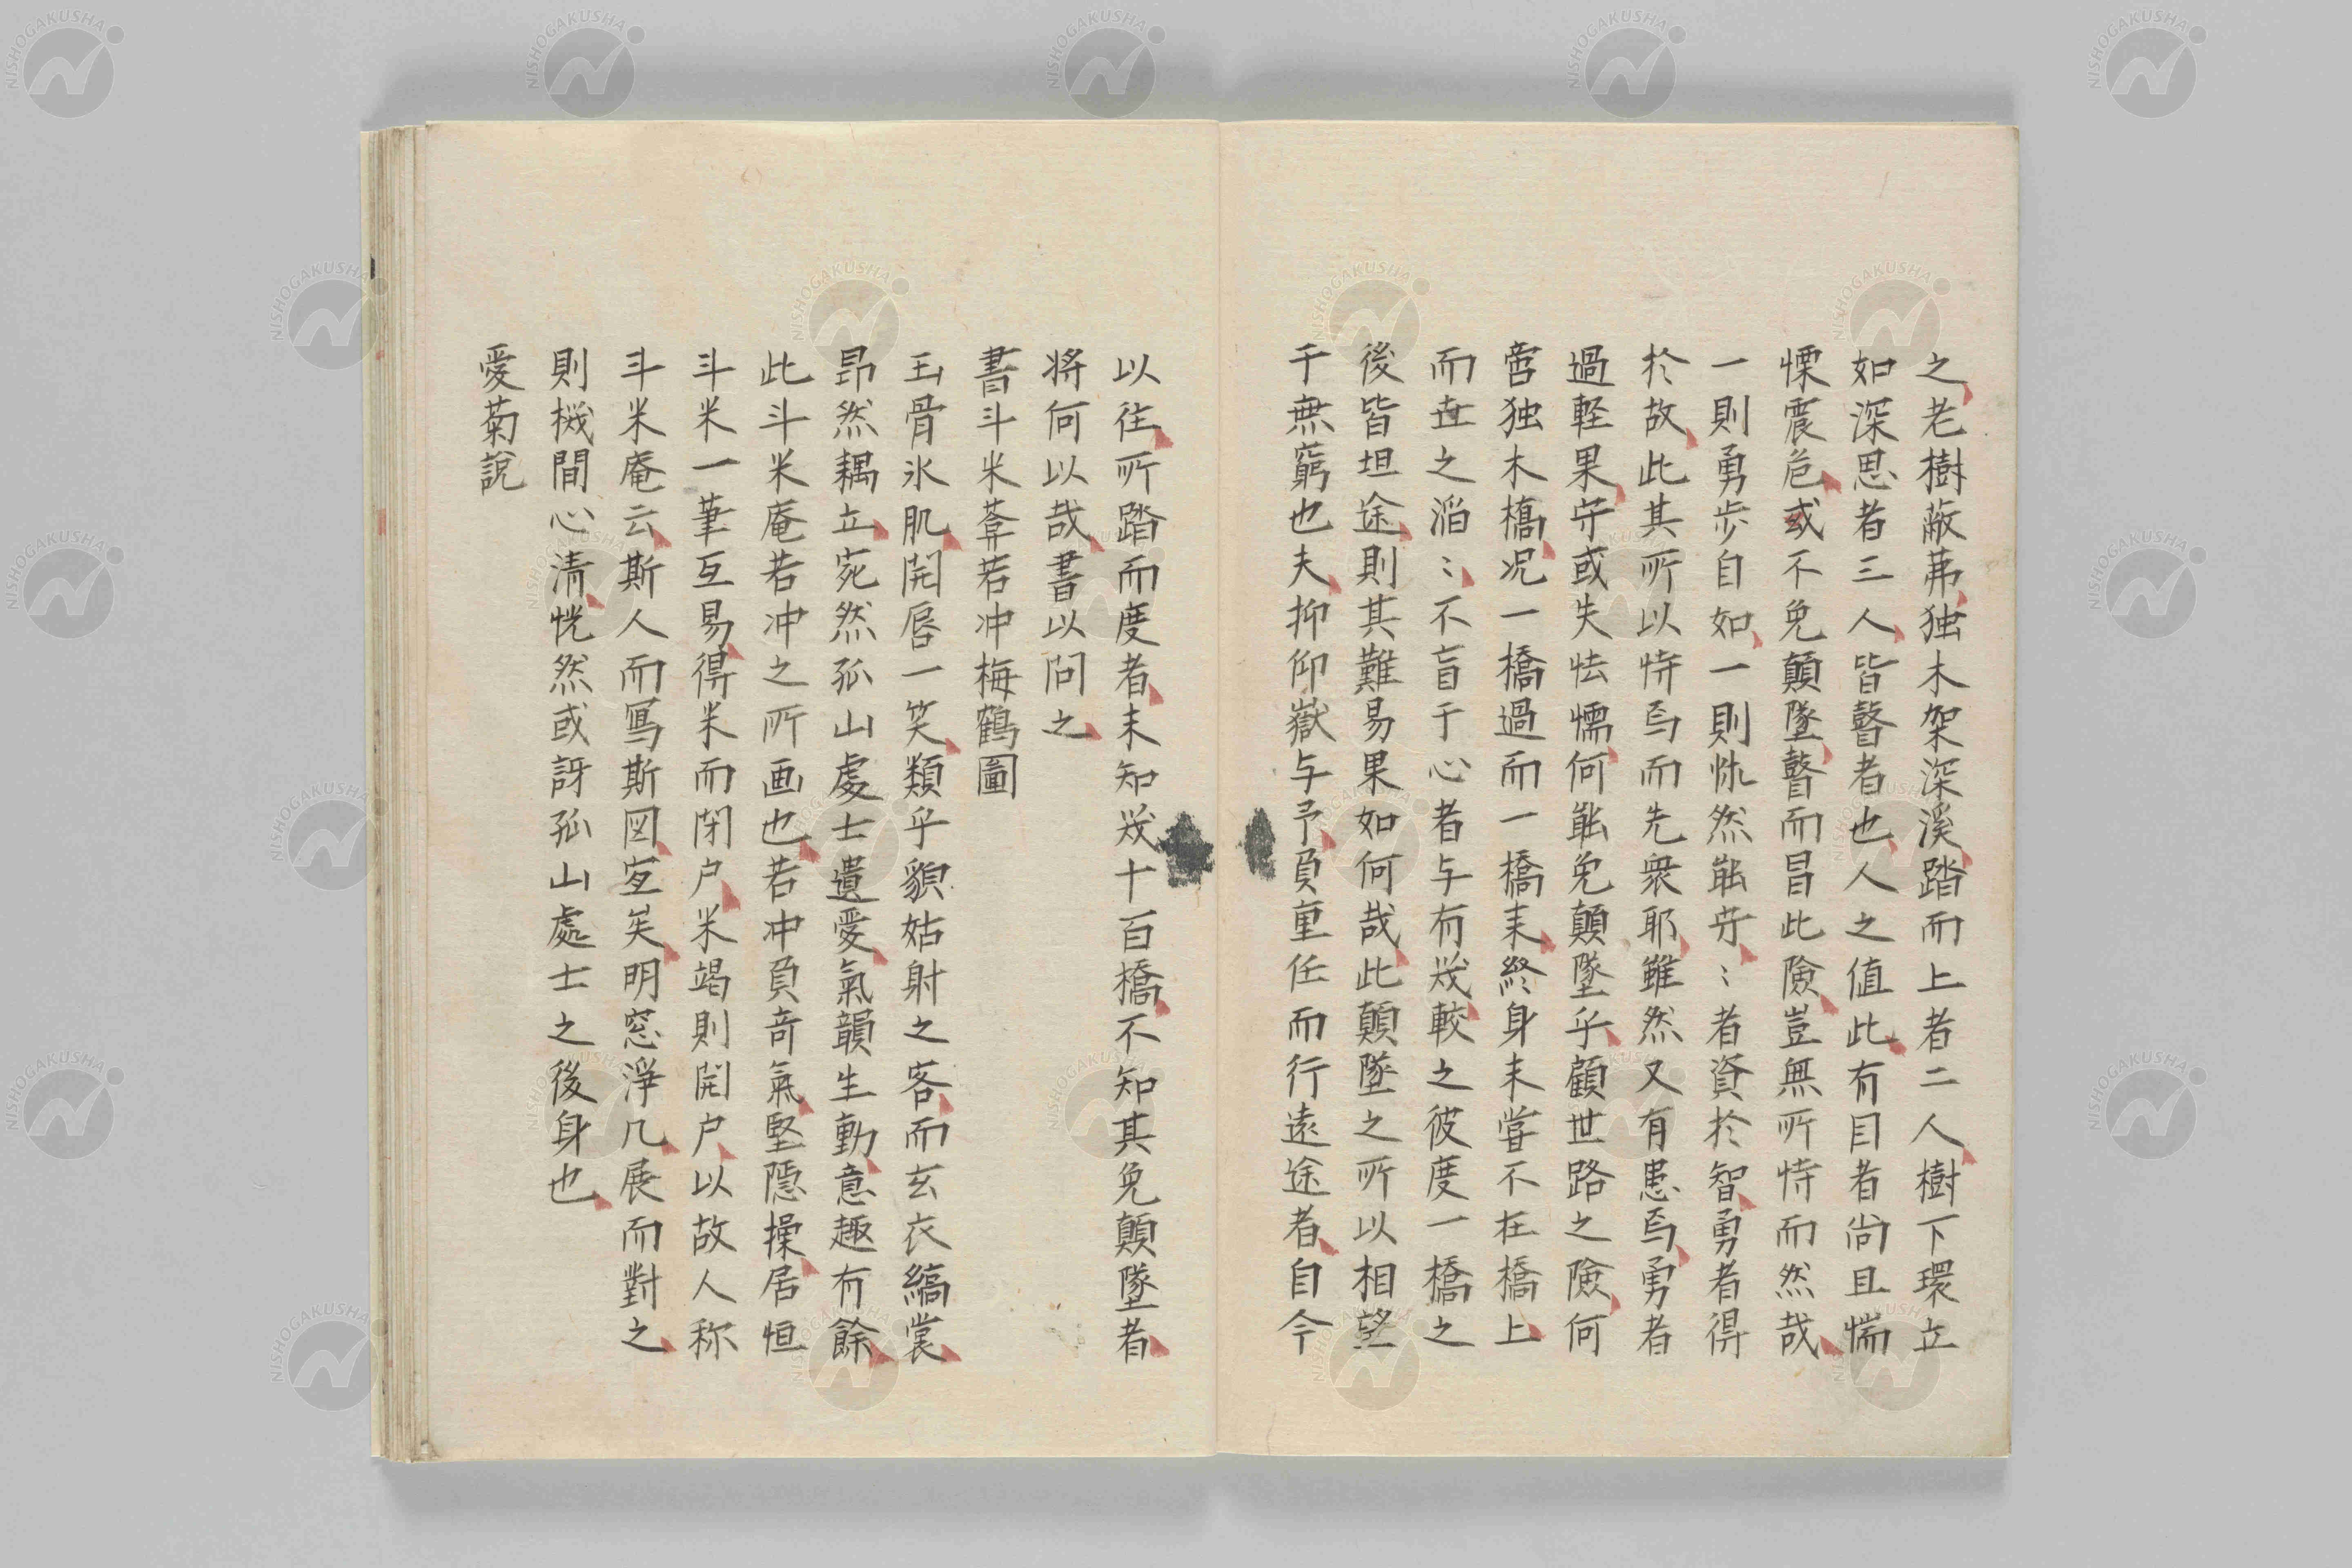 之老樹蔽茀独木架深溪踏而上者二人樹下環立
如深思者三人皆瞽者也人之値此有目者尚且惴
慄震危或不免顛墜瞽而冒此險豈無所恃而然哉
一則勇歩自如一則怵然能守〻者資於智勇者得
於故此其所以恃焉而先衆耶雖然又有患焉勇者
過軽果守或失怯懦何能免顛墜乎顧世路之險何
啻独木橋况一橋過而一橋来終身未嘗不在橋上
而世之滔〻不盲于心者与有幾較之彼度一橋之
後皆坦途則其難易果如何哉此顛墜之所以相望
千無窮也夫抑仰嶽与予負重任而行遠途者自今
以往所踏而度者未知幾十百橋不知其免顛墜者
将何以哉書以問之
書斗米菴若冲梅鶴圖
玉骨氷肌開唇一笑類乎貌姑射之客而玄衣縞裳
昂然耦立宛然孤山處士遺愛氣韻生動意趣有餘
此斗米庵若冲之所画也若冲負奇氣堅隠操居恒
斗米一筆互易得米而閉户米竭則開户以故人称
斗米庵云斯人而写斯図宜矣明窓淨几展而對之
則機間心清恍然或訝孤山處士之後身也
愛菊說
NISHOGAKUSHA